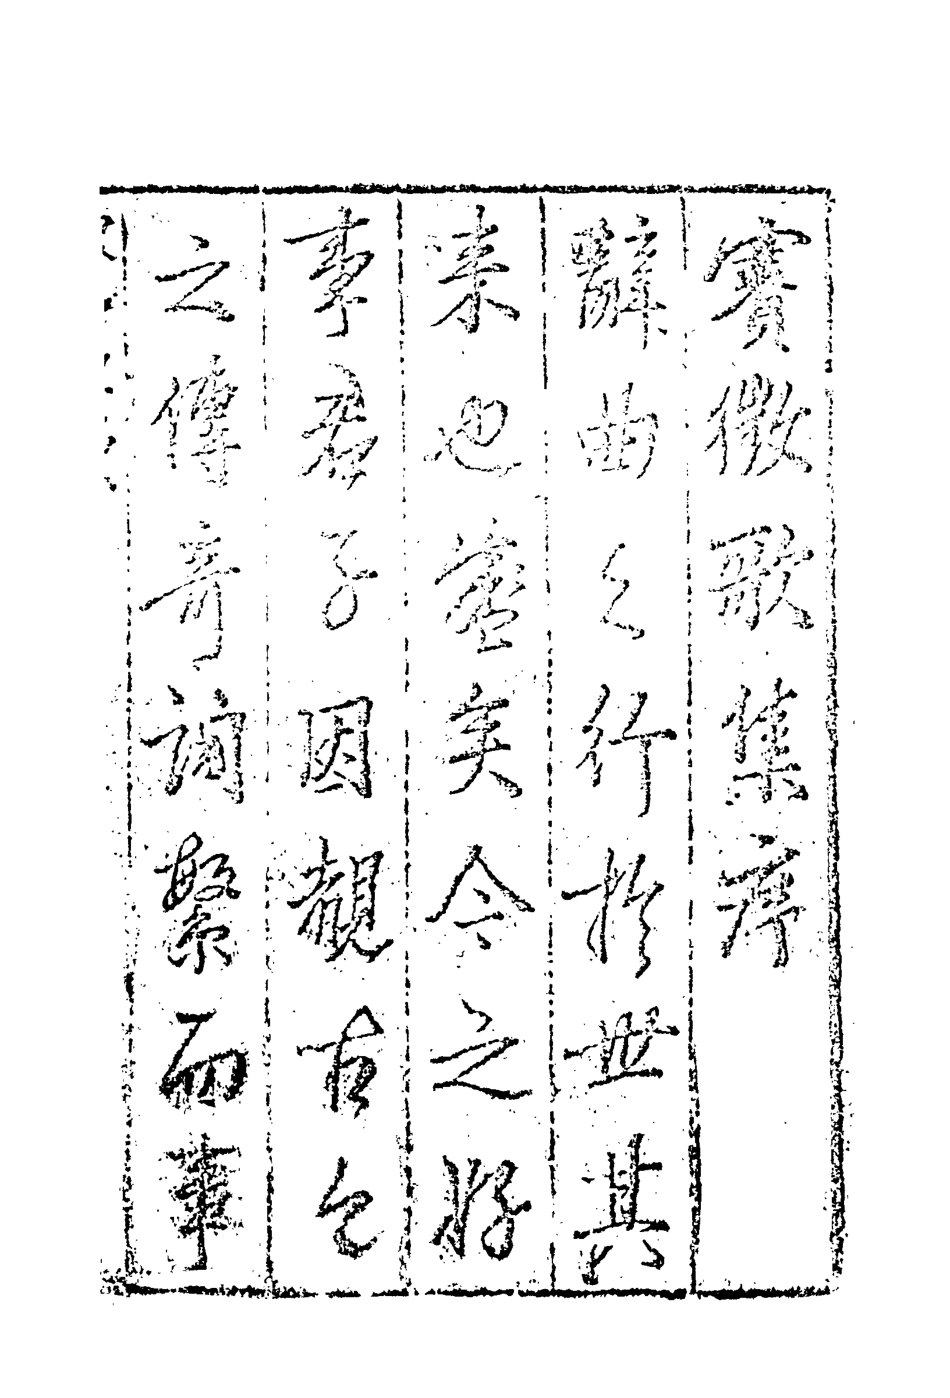 賽徵歌集序
辭曲之行於世其
来也舊矣今之好
事君子因觀古今
之傳奇詞繁而事